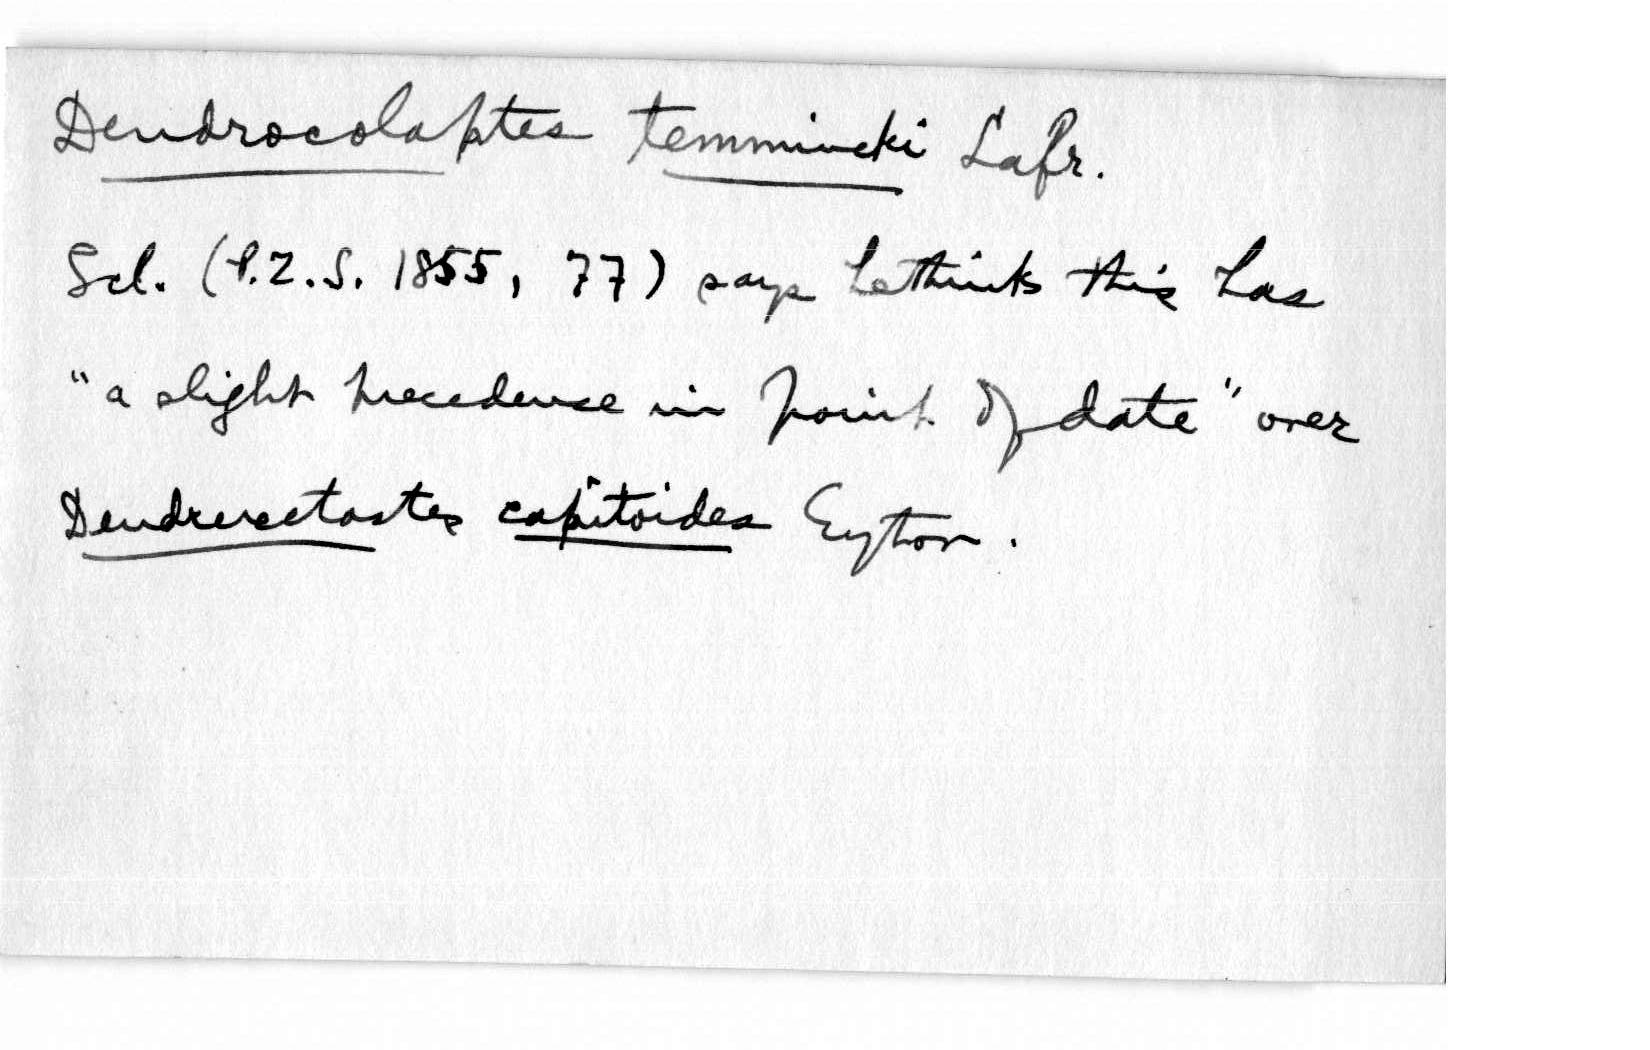 Dendrocolaptes temmincki Lafr.
Scl. (P.Z.S. 1855, 77) says he thinks this has
"a slight precedence in point of date" over
Dendrexetastes capitoides Eyton.